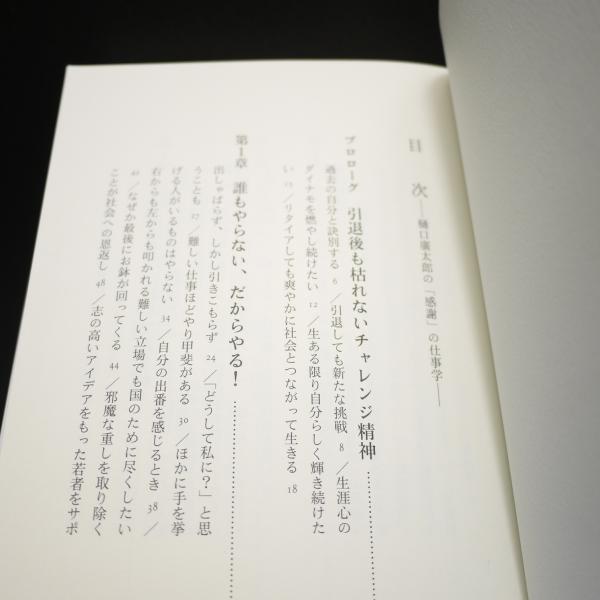 目次――樋口廣太郎の「感謝」の仕事学――
プロローグ 引退後も枯れないチャレンジ精神……………
過去の自分と訣別する 6 ／引退しても新たな挑戦 8 ／生涯心の
ダイナモを燃やし続けたい 12 ／生ある限り自分らしく輝き続けた
い 15 ／リタイアしても爽やかに社会とつながって生きる 18
第1章 誰もやらない、だからやる！……………
出しゃばらず、しかし引きこもらず 24 ／「どうして私に？」と思
うことも 27 ／難しい仕事ほどやり甲斐がある 30 ／ほかに手を挙
げる人がいるものはやらない 34 ／自分の出番を感じるとき 38 ／
右からも左からも叩かれる難しい立場でも国のために尽くしたい
41 ／なぜか最後にお鉢が回ってくる 44 ／邪魔な重しを取り除く
ことが社会への恩返し 48 ／志の高いアイデアをもった若者をサポ